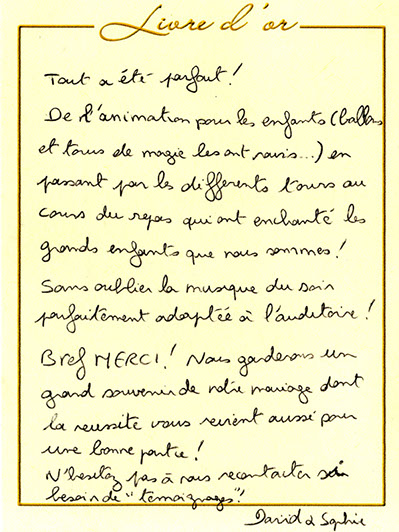 Livre d'or
Tout a été parfait !
De l'animation pour les enfants (ballons
et tours de magie les ont ravis...) en
passant par les différents tours au
cours du repas qui ont enchanté les
grands enfants que nous sommes !
Sans oublier la musique du soir
parfaitement adaptée à l'auditoire !
Bref MERCI ! Nous garderons un
grand souvenir de notre mariage dont
la reussite vous revient aussi pour
une bonne partie !
N'hesitez pas à nous recontacter si
besoin de "temoignages" !
David & Sophie